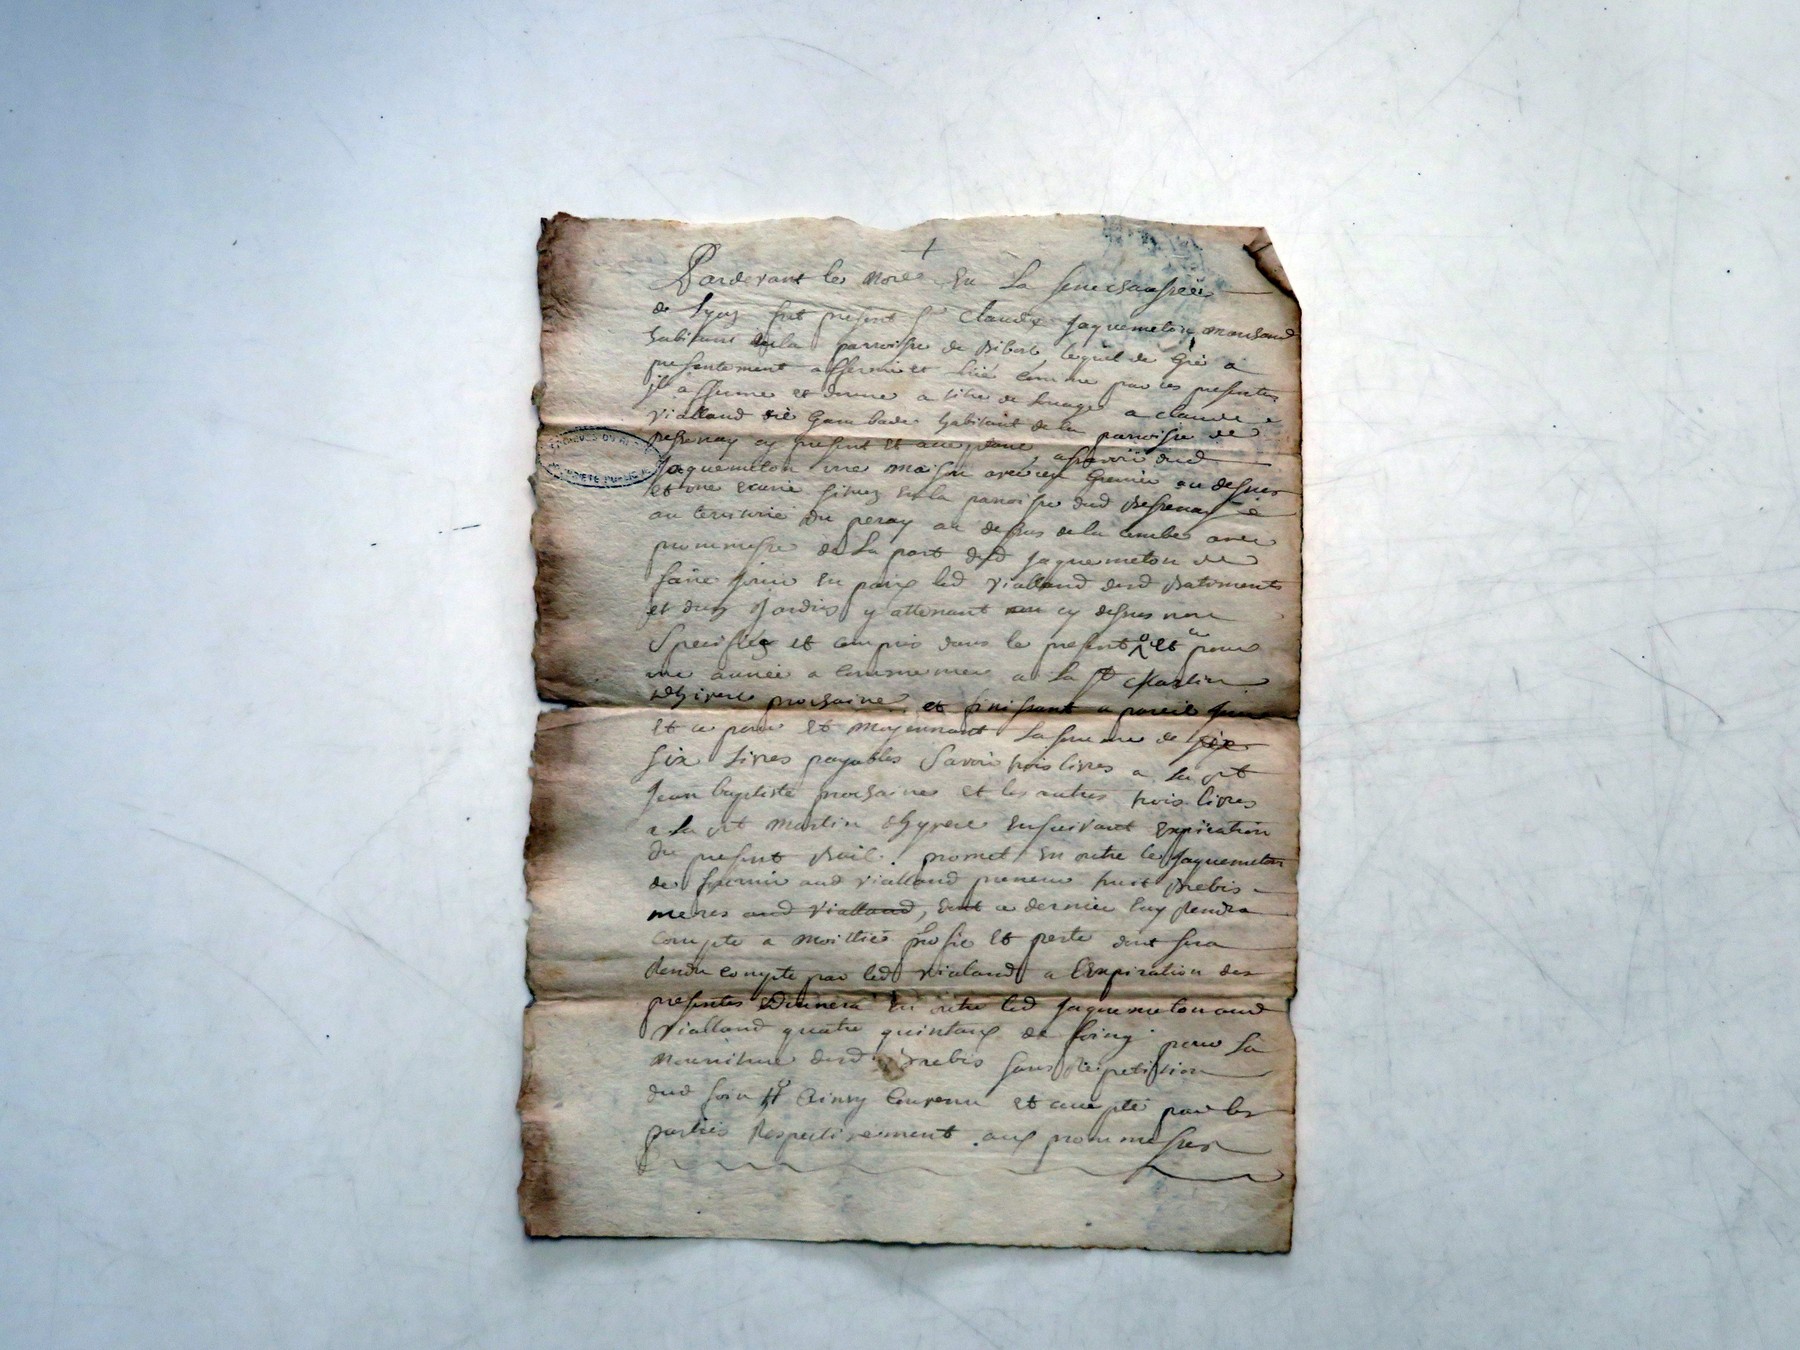 Pardevant les Nore. En La Senechaussée
de Lyon fut present Sr. Claude Jaquemeton marchand
habitant de la parroisse de Bibost, lequel de Gré a
presentement affermé et comme par ces presentes
il afferme et donne a titre de louage a claude
Vialland dit Gambade habitant de la parroisse de
Bessenay cy present et acceptant, ascavoir dud
Jaquemeton une maison avec un Grenier au dessus
et une ecurie situez en la parroisse dud Bessenay
au territoire du peray au dessus de la combe avec
prommesse de La part dud Jaquemeton de
faire jouir En paix led Vialland desd Batiments
et deux Jardins y attenant cy dessus non
Specifiéz et compris dans le present et ce pour
une année a commencer a La St Martin
d'hiver prochaine et finissant a pareil jour
et ce pour et moyennant La somme de six
Six Livres payables Savoir trois livres a La St
Jean baptiste prochaine et les autres trois livres
a La St Martin d'hyver Ensuivant Expiration
du present Bail. promet En outre le Jaquemeton
de fournir aud Vialland preneur huit Brebis
meres aud Vialland, dont ce dernier luy Rendra
compte a moittié profit et perte dont sera
Rendu compte par led Vialand a l'Expiration des
presentes Donnera En outre led Jaquemeton aud
Vialland quatre quintaux de foing pour La
Nourriture desd Brebis sans Repetition
dud foin Ainsy Convenu et accepté par les
parties Respectivement aux prommesses